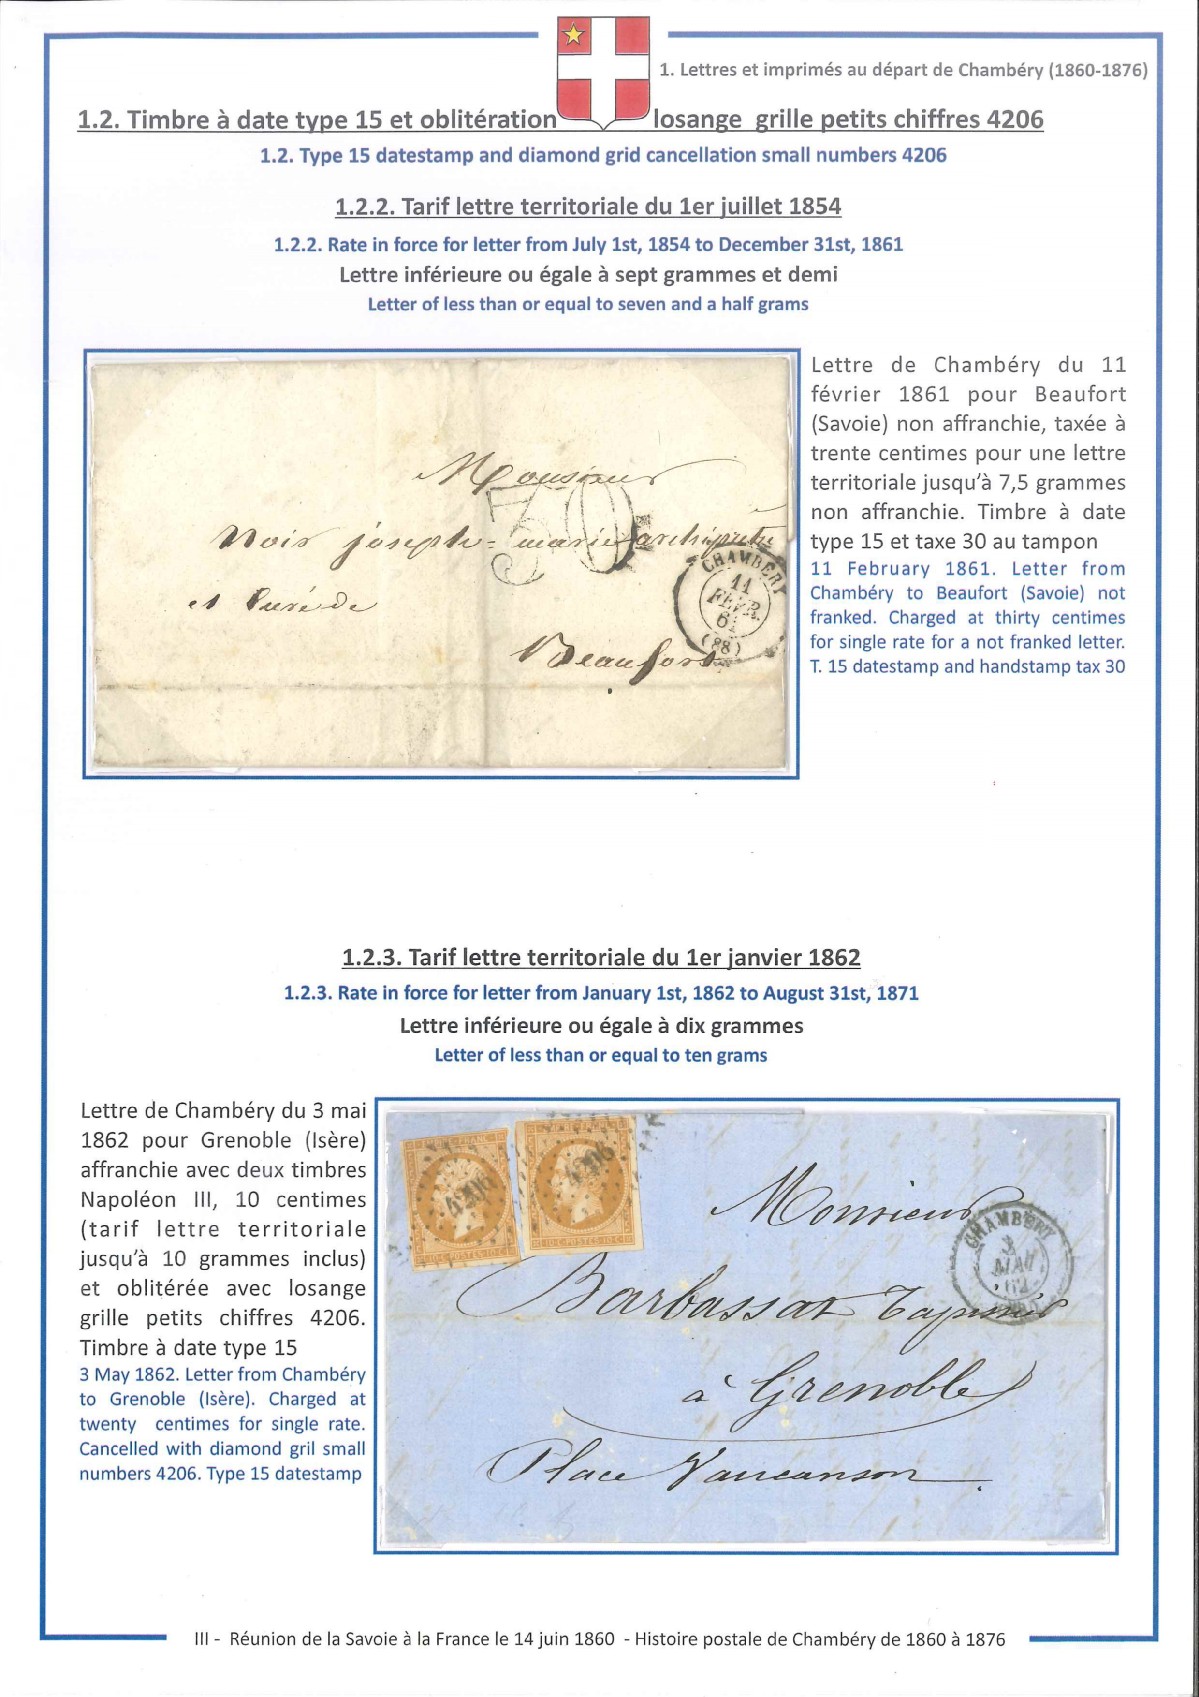 1. Lettres et imprimés au départ de Chambéry (1860-1876)
1.2. Timbre à date type 15 et oblitération losange grille petits chiffres 4206
1.2. Type 15 datestamp and diamond grid cancellation small numbers 4206
1.2.2. Tarif lettre territoriale du 1er juillet 1854
1.2.2. Rate in force for letter from July 1st, 1854 to December 31st, 1861
Lettre inférieure ou égale à sept grammes et demi
Letter of less than or equal to seven and a half grams
Monsieur
Noir joseph-marie archiprêtre
et Curé de
Beaufort
30
CHAMBERY
11
FEVR.
61
(88)
Lettre de Chambéry du 11
février 1861 pour Beaufort
(Savoie) non affranchie, taxée à
trente centimes pour une lettre
territoriale jusqu'à 7,5 grammes
non affranchie. Timbre à date
type 15 et taxe 30 au tampon
11 February 1861. Letter from
Chambéry to Beaufort (Savoie) not
franked. Charged at thirty centimes
for single rate for a not franked letter.
T. 15 datestamp and handstamp tax 30
1.2.3. Tarif lettre territoriale du 1er janvier 1862
1.2.3. Rate in force for letter from January 1st, 1862 to August 31st, 1871
Lettre inférieure ou égale à dix grammes
Letter of less than or equal to ten grams
Lettre de Chambéry du 3 mai
1862 pour Grenoble (Isère)
affranchie avec deux timbres
Napoléon III, 10 centimes
(tarif lettre territoriale
jusqu'à 10 grammes inclus)
et oblitérée avec losange
grille petits chiffres 4206.
Timbre à date type 15
3 May 1862. Letter from Chambéry
to Grenoble (Isère). Charged at
twenty centimes for single rate.
Cancelled with diamond gril small
numbers 4206. Type 15 datestamp
4206
4206
10 C. POSTES 10 C.
10 C. POSTES 10 C.
Monsieur
Barbassat
à Grenoble
Place Vaucanson
CHAMBERY
3
MAI
62
III - Réunion de la Savoie à la France le 14 juin 1860 - Histoire postale de Chambéry de 1860 à 1876